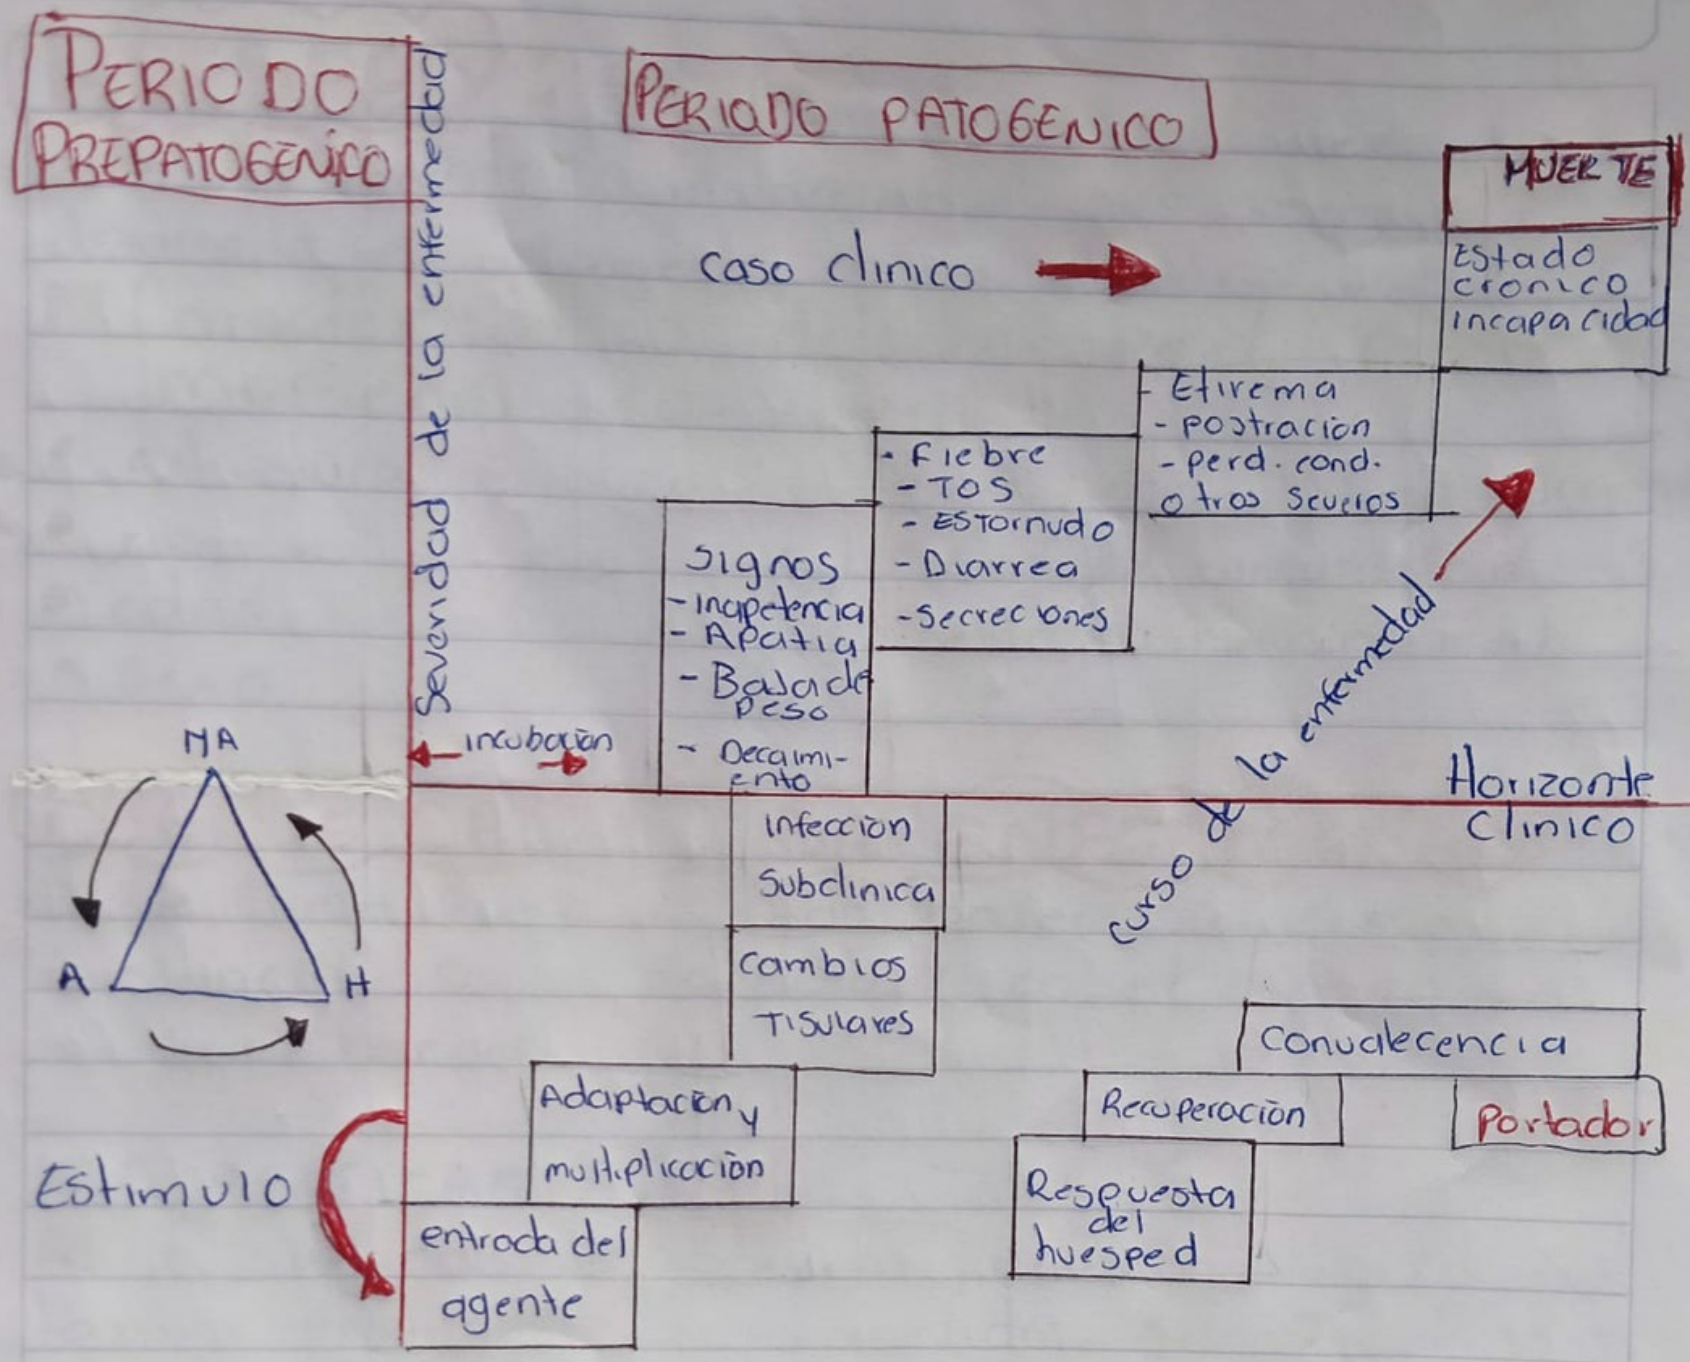 PERIODO
PREPATOGENICO
Severidad de la enfermedad
PERIODO PATOGENICO
MUERTE
caso clinico
Estado
cronico
incapacidad
- Etirema
- postracion
- perd. cond.
otros severos
- Fiebre
- TOS
- ESTornudo
- Diarrea
- Secreciones
Signos
- Inapetencia
- Apatia
- Baja de
peso
- Decaimi-
ento
incubación
curso de la enfermedad
Horizonte
Clinico
MA
A
H
infeccion
Subclinica
cambios
TISulares
Adaptación y
multiplicación
entrada del
agente
Estimulo
Convalecencia
Recuperación
Portador
Respuesta
del
huesped